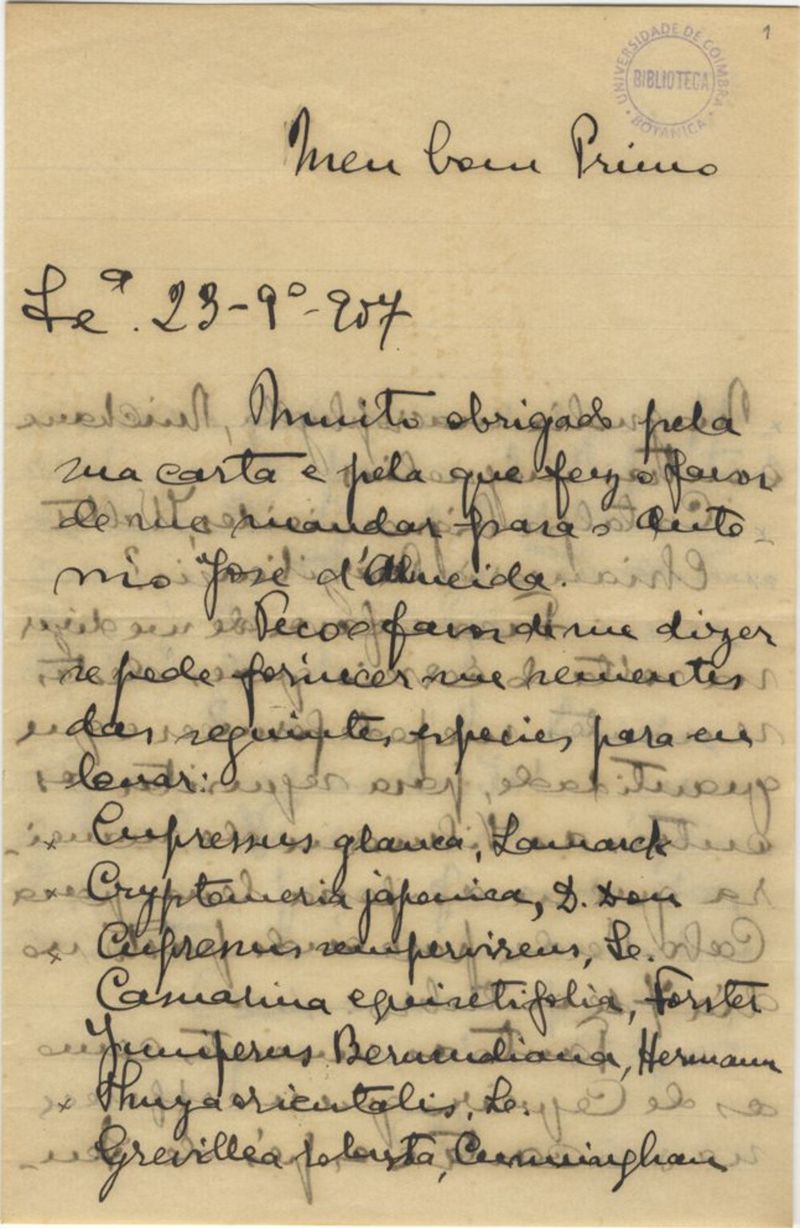 1
UNIVERSIDADE DE COIMBRA
BIBLIOTECA
BOTANICA
Meu bom Primo
Lxª. 23-9º-907
Muito obrigado pela
sua carta e pela que fez o favor
de me mandar para o Anto-
nio José d'Almeida.
Peço o favor de me dizer
se pode fornecer me sementes
das seguintes especies para eu
levar:
x Cupressus glauca, Lamarck
x Cryptomeria japonica, D. Don
x Cupressus sempervirens, Le.
Casuarina equisetifolia, Forster
Juniperus Bermudiana, Hermann
x Thuya orientalis, Le.
Grevillea robusta, Cunningham